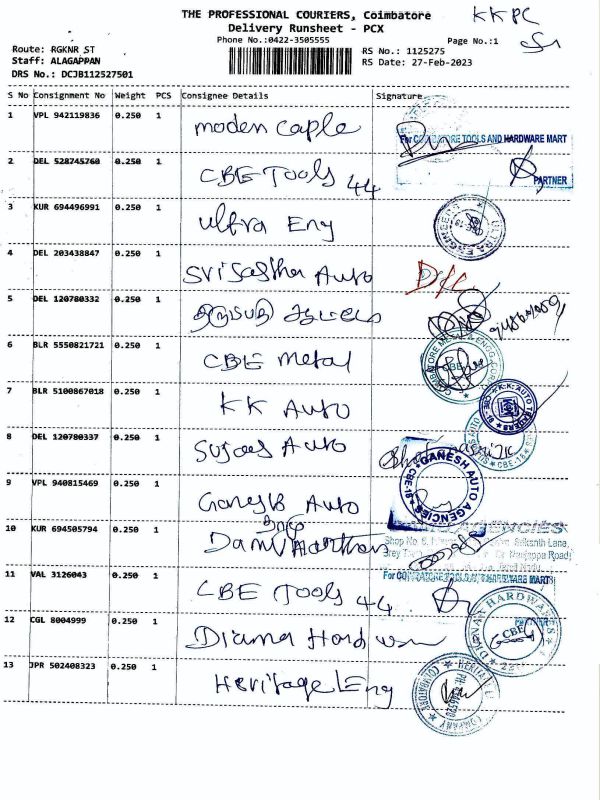 THE PROFESSIONAL COURIERS, Coimbatore
KKPC
Delivery Runsheet - PCX
Phone No.:0422-3505555
Page No.:1
Route: RGKNR ST
RS No.: 1125275
Staff: ALAGAPPAN
RS Date: 27-Feb-2023
DRS No.: DCJB112527501
S No Consignment No Weight PCS Consignee Details Signature
1 VPL 942119836 0.250 1 moden Caple
For COIMBATORE TOOLS AND HARDWARE MART
PARTNER
2 DEL 528745760 0.250 1 CBE Tools 44
3 KUR 694496991 0.250 1 ultra Eng
4 DEL 203438847 0.250 1 Srisastha Auto
5 DEL 120780332 0.250 1
6 BLR 5550821721 0.250 1 CBE metal
7 BLR 5100867018 0.250 1 KK Auto
K.K. AUTO TRADERS
8 DEL 120780337 0.250 1 Auto
GANESH AUTO AGENCIES
CBE-18
9 VPL 940815469 0.250 1 Auto
AGENCIES
10 KUR 694505794 0.250 1
11 VAL 3126043 0.250 1 CBE Tools 44
For COIMBATORE TOOLS & HARDWARE MART
12 CGL 8004999 0.250 1 Diana Hard
HARDWARES
CBE
13 JPR 502408323 0.250 1 Heritage Eng